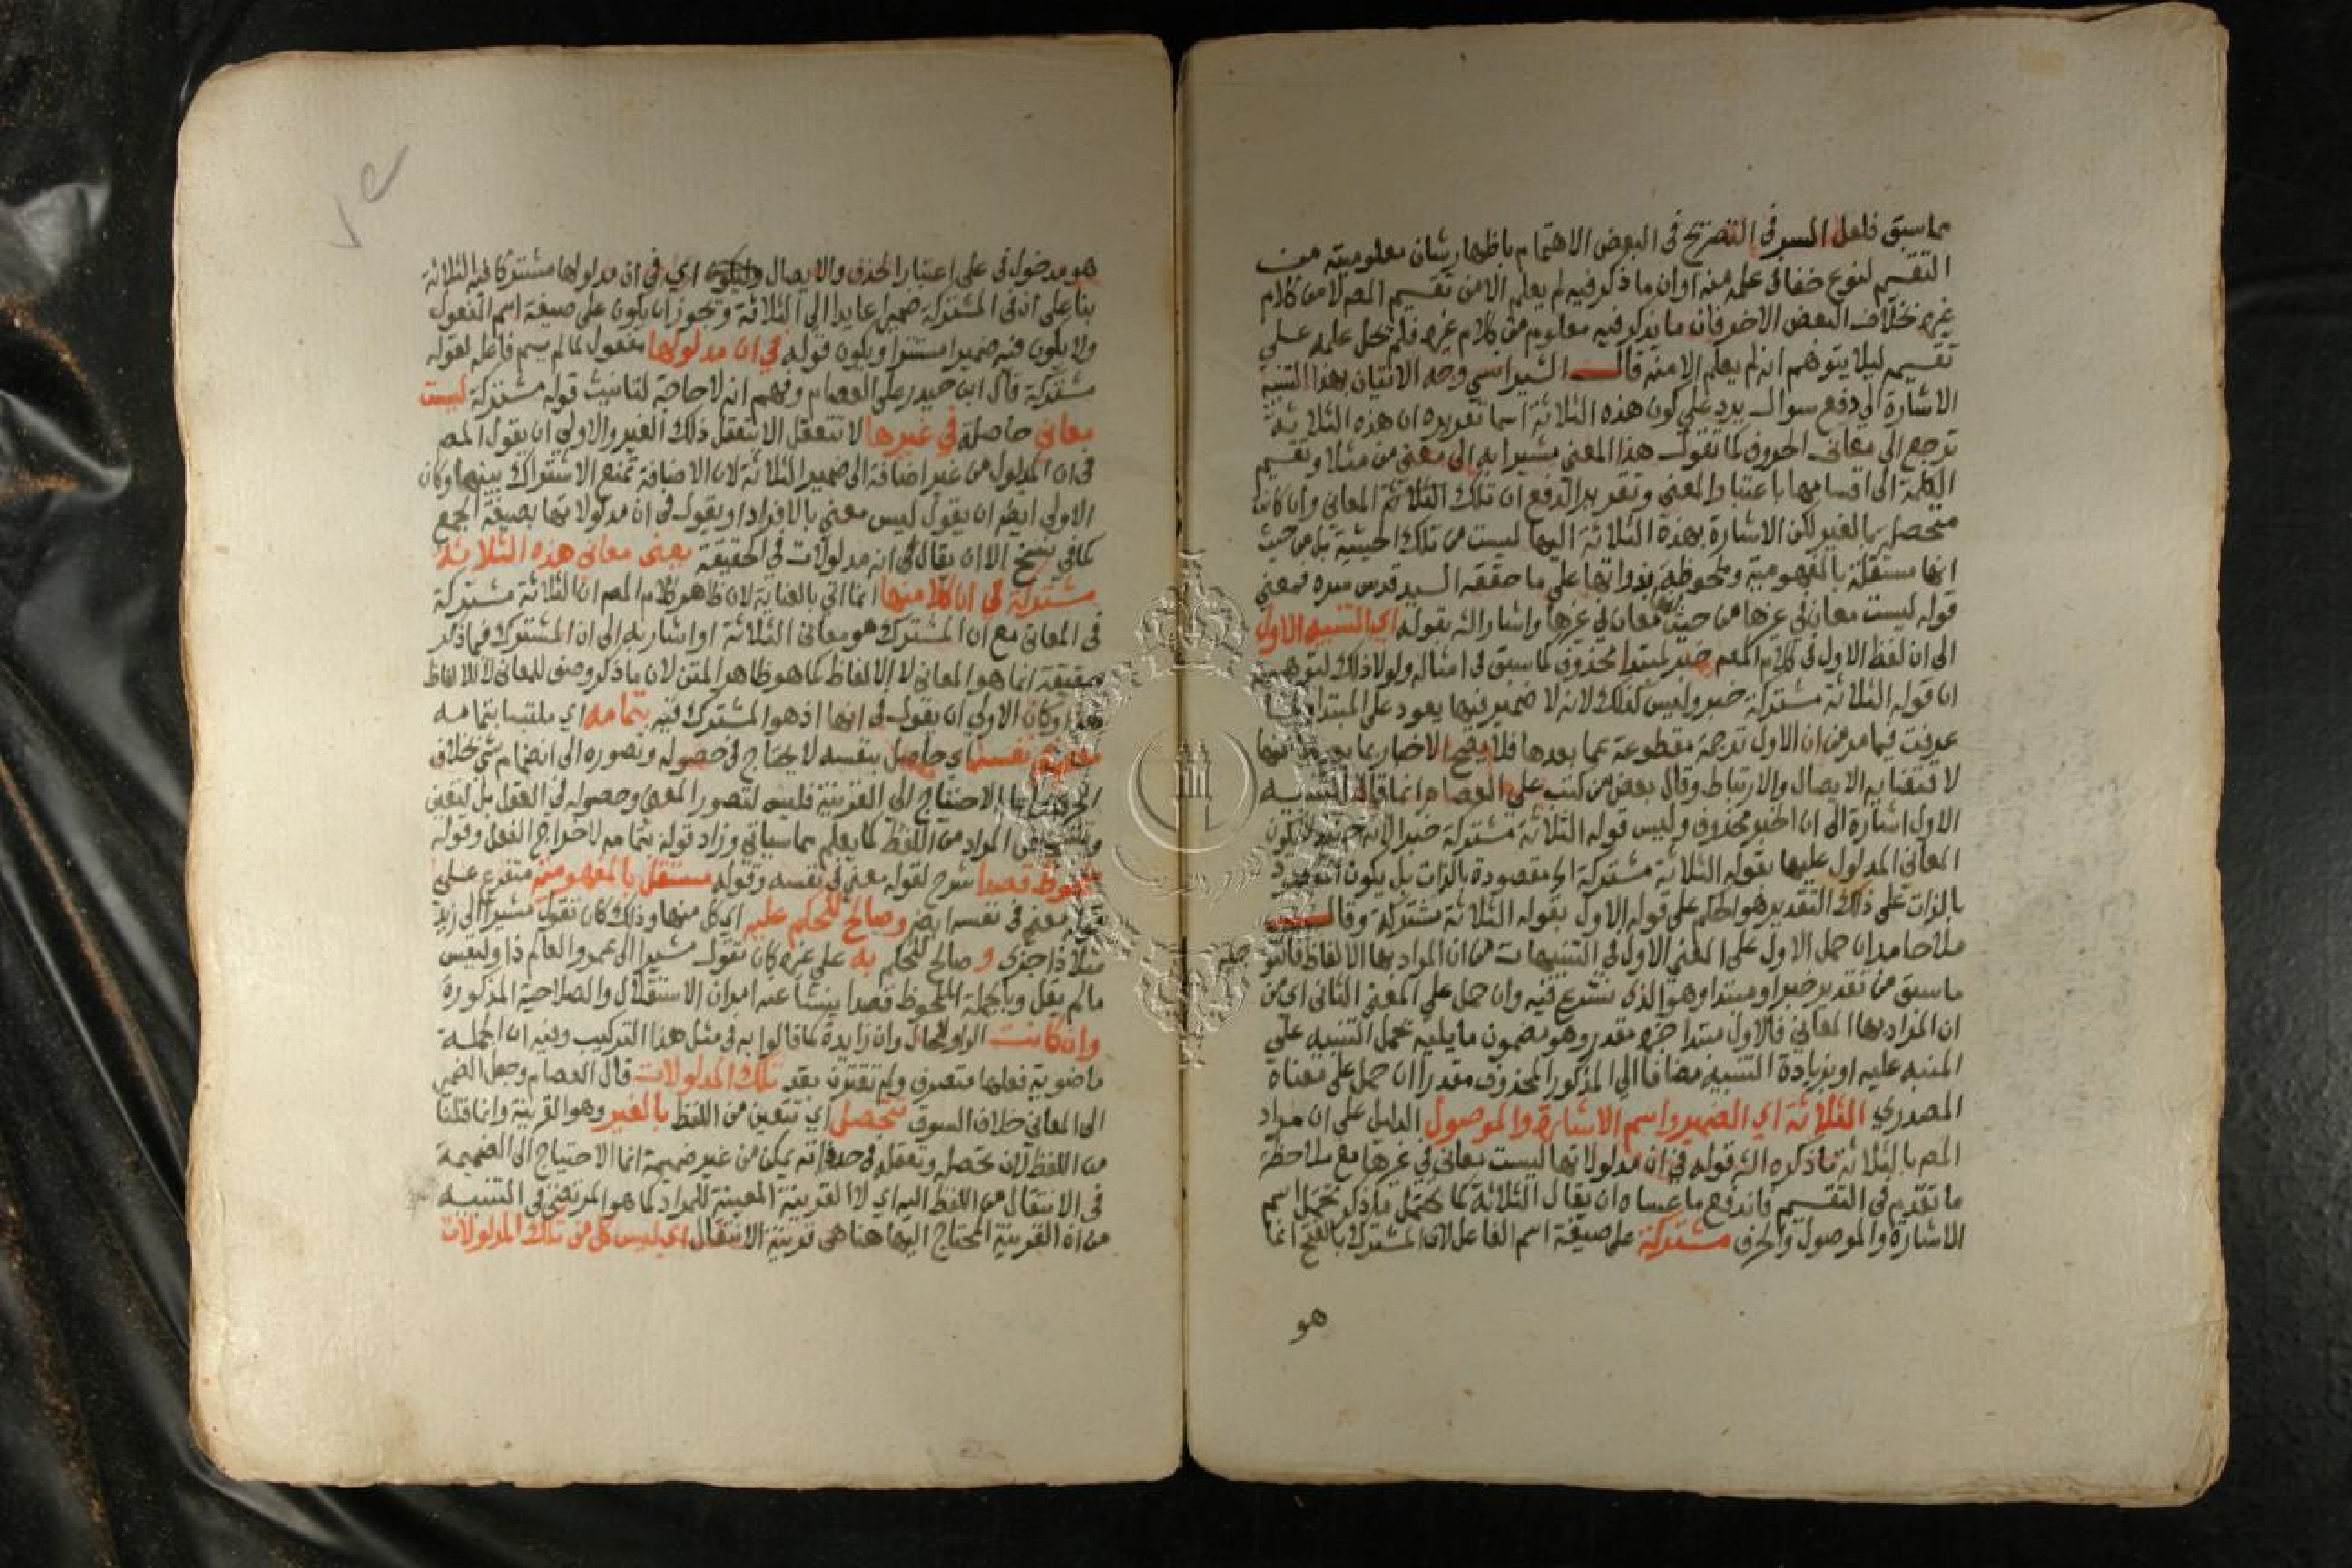 مما سبق فلعل السر في التصريح في البعض الاهتمام باظهار شان معلوميته من
التقسيم لنوع خفائ علمه منه اوان ما ذكر فيه لم يعلم الا من تقسيم المصـ لا من كلام
غيره بخلاف البعض الاخر فان ما يذكر فيه معلوم من كلام غيره فلم يحل علمه على
تقسيمه ليلا يتوهم انه لم يعلم الا منه قال الشيراسي وجه الاتيان بهذا التنبيه
الاشارة الى دفع سوال يرد على كون هذه الثلاثة اسما تقريره ان هذه الثلاثة
ترجع الى معانى الحروف كما تقول هذا المعني مشيرا به الى معني من مثلا وتقسيم
الكلمة الى اقسامها باعتبار المعنى وتقرير الدفع ان تلك الثلاثة المعاني وان كانت
متحصلة بالغير لكن الاشارة بهذه الثلاثة اليها ليست من تلك الحيثية بل من حيث
انها مستقلة بالمفهومية وملحوظة بذواتها على ما حققه السيد قدس سره فمعني
قوله ليست معاني في غيرها من حيث معان في غيرها واشار اليه بقوله اي التنبيه الاول
الى ان لفظ الاول في كلام المصـ خبر لمبتدا محذوف كما سبق في امثاله ولولا ذلك لتوهم
ان قوله الثلاثة مشتركة خبر وليس كذلك لانه لا ضمير فيها يعود على المبتدا
عرفت فيما مر من ان الاول ترجمة مقطوعة عما بعدها فلا يصح الاخبار عما بعد
لاقتضايه الايصال والارتباط وقال بعض من كتب على العصام انما قال التنبيه
الاول اشارة الى ان الخبر محذوف وليس قوله الثلاثة مشتركة خبرا لانه حينيذ لا يكون
المعاني المدلول عليها بقوله الثلاثة مشتركة الى مقصودة بالذات بل يكون المقصود
بالذات على ذلك التقدير هو الحكم على قوله الاول بقوله الثلاثة مشتركة وقال
ملا حامد ان حمل الاول على المعني الاول في التنبيهات من ان المراد بها الالفاظ فالتو جيه
ما سبق من تقدير خبر او مبتدا وهو الذي نشرع فيه وان حمل على المعني الثاني اي من
ان المراد بها المعاني فالاول مبتدا خبره مقدر وهو مضمون ما يليه بحمل التنبيه على
المنبه عليه او بزيادة التنبيه مضافا الى المذكور المحذوف مقدرا ان حمل على معناه
المصدري الثلاثة اي الضمير واسم الاشارة والموصول الدليل على ان مراد
المصـ بالثلاثة ما ذكره الشـ قوله في ان مدلولاتها ليست معاني في غيرها مع ملاحظة
ما تقدم في التقسيم فاندفع ما عساه ان يقال الثلاثة كما تحتمل ما ذكر تحتمل اسم
الاشارة والموصول والحرف مشتركة على صيغة اسم الفاعل لان المشترك بالفتح انما
هو
هو مدخول في على اعتبار الحذف والايصال اي في ان مدلولها مشتركا فيه الثلاثة
بناء على ان في المشتركة ضميرا عايدا الى الثلاثة وتجوز ان يكون على صيغة اسم المفعول
ولا يكون فيه ضميرا مستترا ويكون قوله في ان مدلولها مفعول ما لم يسم فاعله لقوله
مشتركة قال ابن حيدر على العصام وفهم انه لا حاجة لتانيث قوله مشتركة ليست
معاني حاصلة في غيرها لا تتعقل الا بتعقل ذلك الغير والاولى ان يقول المصـ
في ان المدلول من غير اضافة الى ضمير الثلاثة لان الاضافة تمنع الاشتراك بينهما وكان
الاولى ايضا ان يقول ليس معني بالافراد او يقول في ان مدلولاتها بصيغة الجمع
كما في نسخ الا ان يقال في انه مدلولات في الحقيقة يعنى معانى هذه الثلاثة
مشتركة في ان كلا منها انما اتي بالعناية لان ظاهر كلام المصـ ان الثلاثة مشتركة
في المعاني مع ان المشترك هو معاني الثلاثة او اشار به الى ان المشترك فيما ذكر
حقيقة انما هو المعاني لا الالفاظ كما هو ظاهر المتن لان ما ذكر وصف للمعاني لا الالفاظ
وكان الاولى ان يقول في انها اذ هو المشترك فيه بتمامه اي ملتبسا بتمامه
معني في نفسه اي حاصل بنفسه لا يحتاج في حصوله وتصوره الى انضمام شي بخلاف
الحرف واما الاحتياج الى القرينة فليس لتصور المعنى وحصوله في العقل بل لتعين
المراد من اللفظ كما يعلم مما سياتي وزاد قوله بتمامه لاخراج الفعل وقوله
ملحوظ قصدا شرح لقوله معني في نفسه وقوله مستقل بالمفهومية متفرع على
قوله معني في نفسه ايضـ وصالح للحكم عليه اي كل منها وذلك كان تقول مشيرا الى زيد
مثلا ذا جزي و صالح للحكم به على غيره كان تقول مشيرا الى عمرو العالم ذا وليس
ما لم يقل وبالجملة الملحوظ قصدا ينشا عنه امران الاستقلال والصلاحية المذكورة
وان كانت الواو للحال وان زايدة كما قالوا به في مثل هذا التركيب وفيه ان الجملة
ماضوية فعلها متصرف ولم تقترن بقد تلك المدلولات قال العصام وجعل الضمير
الى المعاني خلاف السوق تتحصل اي تتعين من اللفظ بالغير وهو القرينة وانما قلنا
من اللفظ لان تحصله وتعقله في حد ذاته يمكن من غير ضميمة انما الاحتياج الى الضميمة
في الانتقال من اللفظ اليه اي لا القرينة المعينة للمراد كما هو المرتضى في التنبيه
من ان القرينة المحتاج اليها هنا هي قرينة الانتقال اي ليس كل من تلك المدلولات